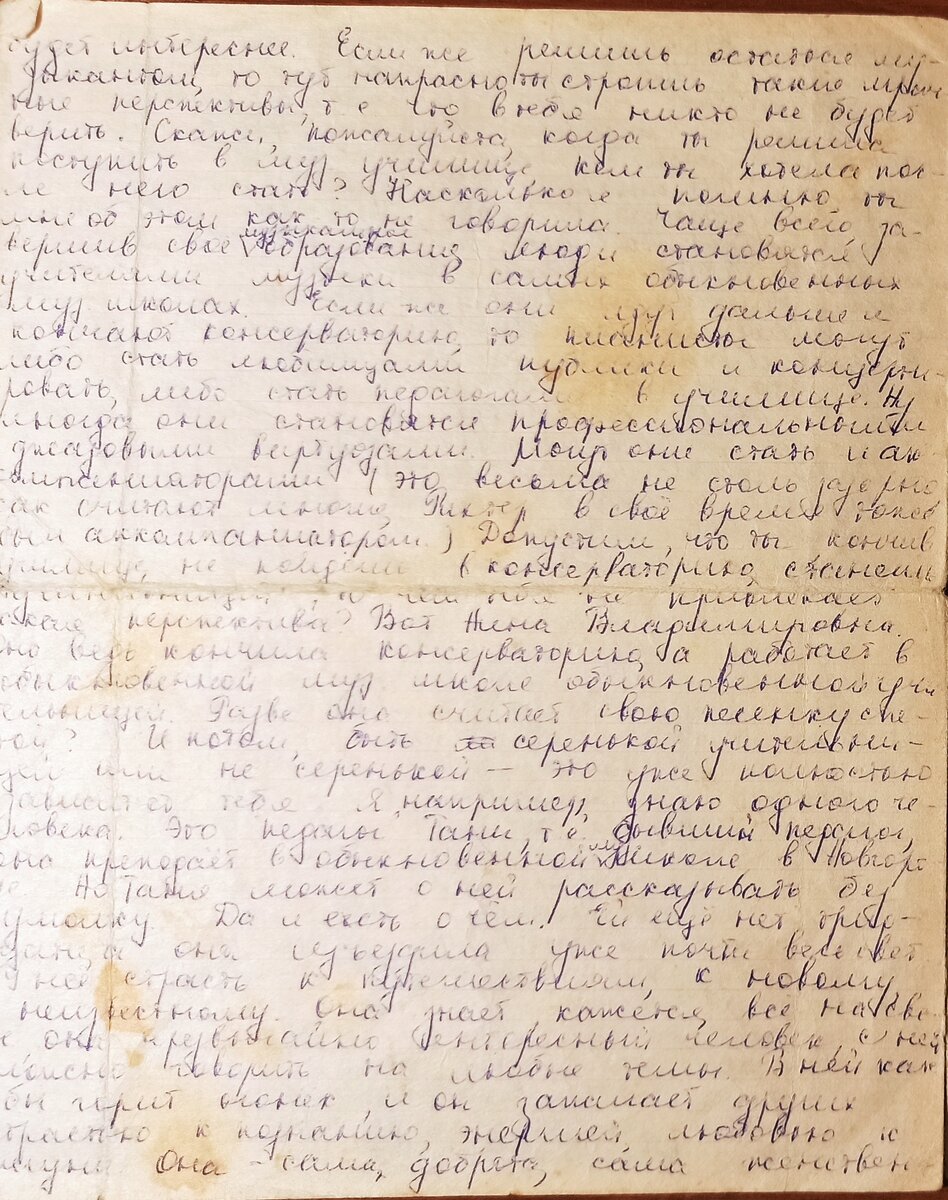 будет интереснее. Если же решишь остаться му-
зыкантом, то тут напрасно ты строишь такие мрач
ные перспективы, т.е. что в тебя никто не будет
верить. Скажи, пожалуйста, когда ты решила
поступить в муз училище, кем ты хотела пос-
ле него стать? Насколько я помню, ты
мне об этом как то не говорила. Чаще всего за-
вершив своё музыкальный образование, люди становятся
учителями музыки в самых обыкновенных
муз школах. Если же они идут дальше и
кончают консерваторию, то пианисты могут
либо стать любимцами публики и концерти-
ровать, либо стать педагогами в училище. Ну
иногда они становятся профессиональными
джазовыми виртуозами. Могут они стать и ак-
компаниаторами (это весьма не столь зазорно
как считают многие, Рихтер в своё время тоже
был аккампаниатором.) Допустим, что ты кончив
училище, не пойдешь в консерваторию, станешь
и чем тебя не привлекает
такая перспектива? Вот Нина Владимировна.
Она ведь кончила консерваторию, а работает в
обыкновенной муз школе обыкновенной учи
тельницей. Разве она считает свою песенку спе-
той? И потом, быть серенькой учительни-
цей или не серенькой — это уже полностью
зависит от тебя. Я например, знаю одного че-
ловека. Это педагог Тани, т.е. бывший педагог,
она преподаёт в обыкновенной муз школе в Новгоро
де. Но Таня может о ней рассказывать без
умолку. Да и есть о чём. Ей ещё нет трид-
цати, а она изъездила уже почти весь свет.
У неё страсть к путешествиям, к новому,
неизвестному. Она знает, кажется, всё на све
те она чрезвычайно интересный человек, с ней
можно говорить на любые темы. В ней как
бы горит огонек, и он зажигает других
страстью к познанию, энергией, любовью к
жизни. Она - сама доброта, сама женствен-